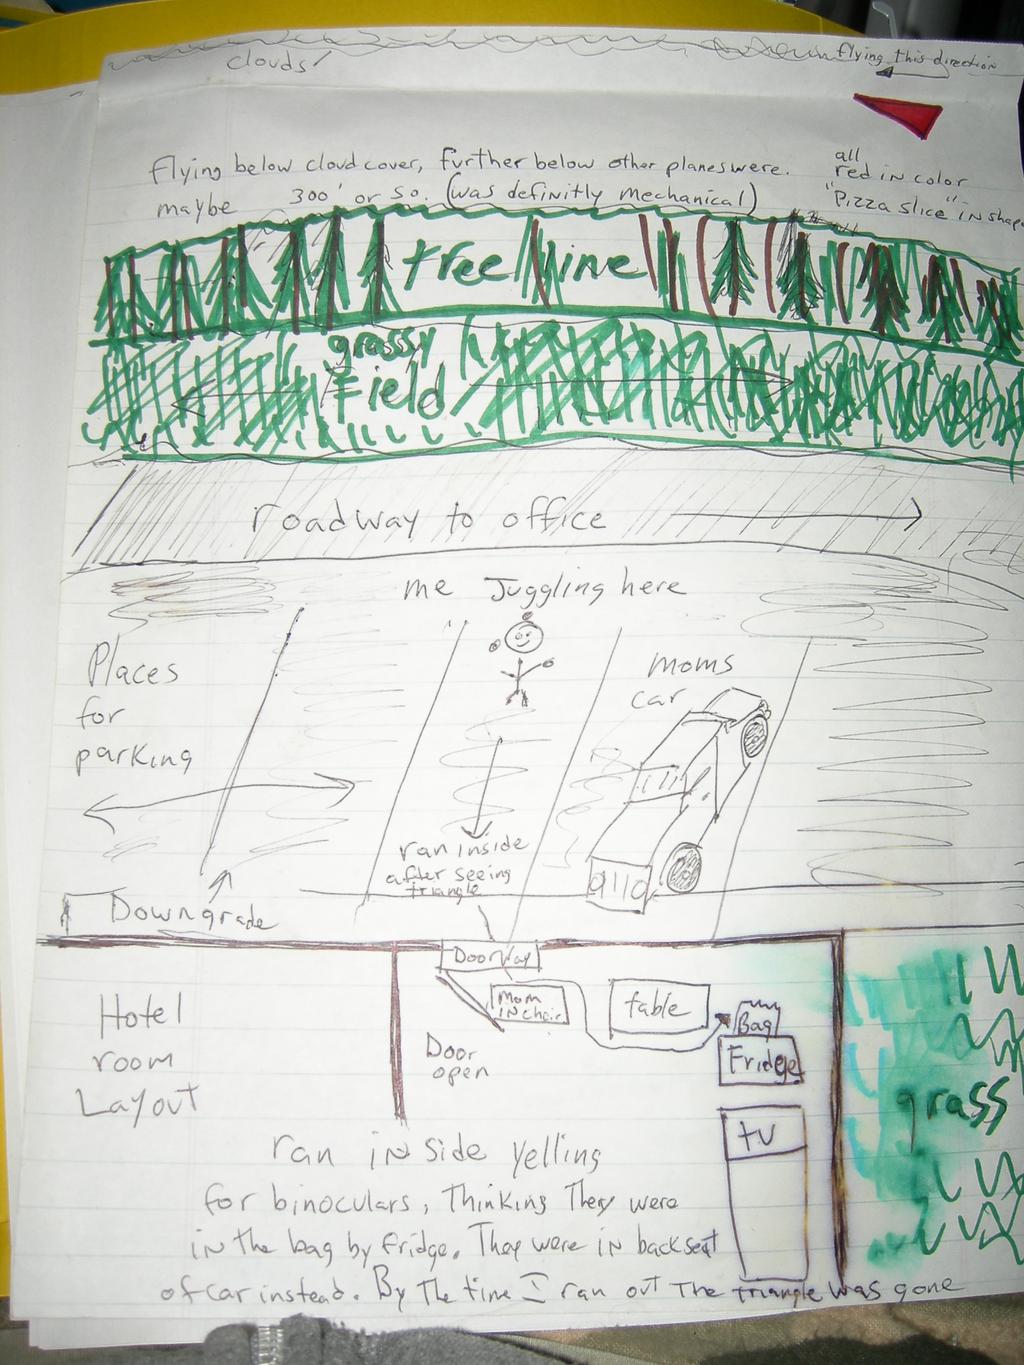 clouds!
flying this direction
Flying below cloud cover, further below other planes were.
maybe 300' or so. (was definitly mechanical)
all
red in color
"Pizza slice" in shape
tree line
grassy
Field
roadway to office
me Juggling here
Places
for
parking
moms
car
ran inside
after seeing
triangle
9110
Downgrade
Doorway
Mom
in chair
table
Bag
Fridge
Hotel
room
Layout
Door
open
tv
grass
ran inside yelling
for binoculars, Thinking They were
in the bag by fridge. They were in backseat
of car instead. By the time I ran out the triangle was gone